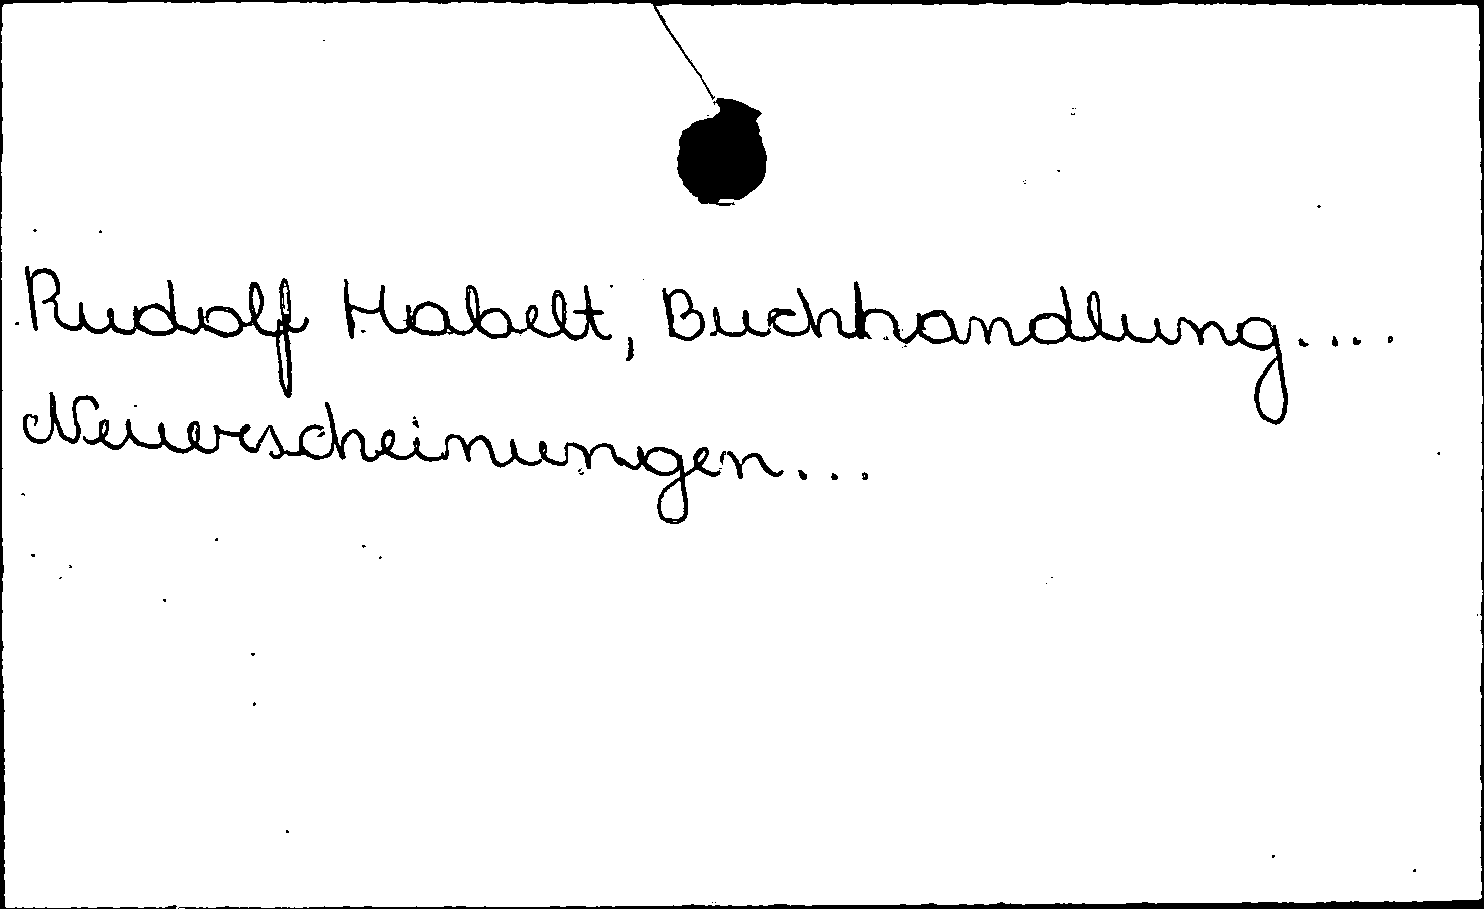 Rudolf Habelt, Buchhandlung....
Neuerscheinungen...